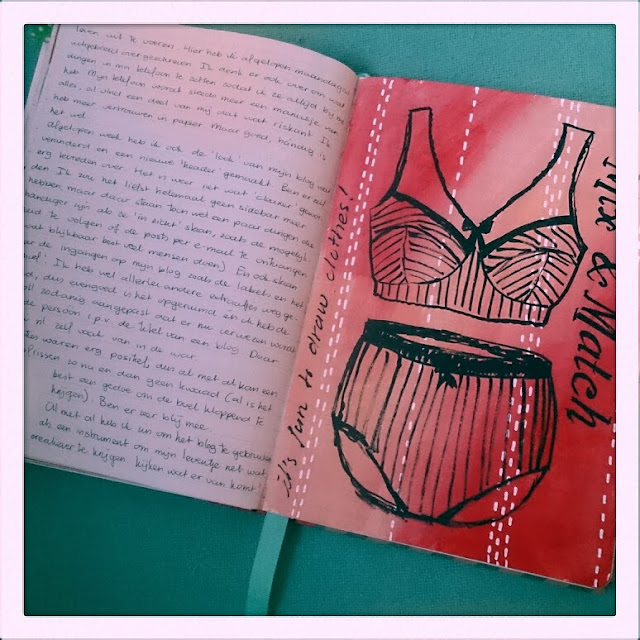 leven wil te voeren. Hier heb ik afgelopen maandag al
uitgebreid over geschreven. Ik denk er ook over om wat
dingen in mn telefoon te zetten zodat ik ze altijd bij me
heb. Mijn telefoon wordt steeds meer een manusje van
alles, al vind een deel van mij dat weer riskant. Ik
heb meer vertrouwen in papier. Maar goed, handig is
het wel.
afgelopen week heb ik ook de 'look' van mijn blog weer
veranderd en een nieuwe 'header' gemaakt. Ben er zelf
erg tevreden over. Het is weer net wat 'cleaner'
den. Ik zou het liefst helemaal geen sidebar meer
hebben maar daar staan toch wel een paar dingen die
handiger zijn als ze 'in zicht' staan, zoals de mogelijk
te volgen of de posts per e-mail te ontvangen
blijkbaar best veel mensen doen). En ook staan
de ingangen op mijn blog zoals de labels en het
Ik heb wel allerlei andere
in het opgenomen en ik heb de
zodanig aangepast dat er nu verwezen wordt
de persoon i.p.v. de titel van een blog. Daar
n! zelf vaak van in de war.
waren erg positief, dus al met al kan een
frissen zo nu en dan geen kwaad (al is het
best een gedoe om de boel kloppend te
krijgen). Ben er zeer blij mee.
Al met al heb ik zin om het blog te gebruiken
als een instrument om mijn leventje net wat
creatiever te krijgen kijken wat er van komt!
it's fun to draw clothes!
Mix & Match